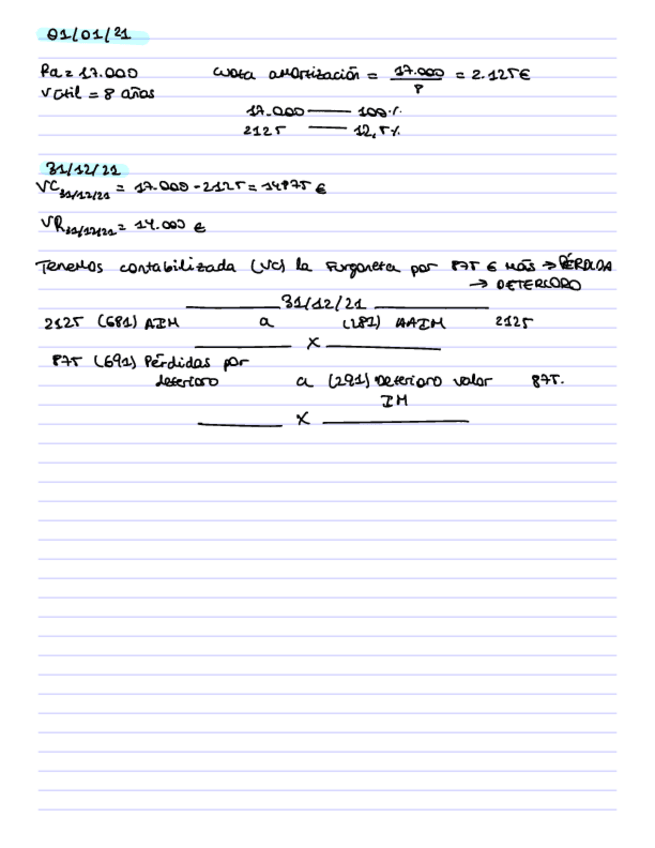 01/01/21
Pa = 17.000 Cuota amortización = 17.000 / 8 = 2.125 €
V útil = 8 años
17.000 —— 100%
2125 —— 12,5%
31/12/21
VC 31/12/21 = 17.000 - 2125 = 14875 €
VR 31/12/21 = 14.000 €
Tenemos contabilizada (VC) la furgoneta por 875 € más → PÉRDIDA
→ DETERIORO
31/12/21
2125 (681) AIM a (281) AAIM 2125
x
875 (691) Pérdidas por
deterioro a (291) Deterioro valor 875.
IM
x